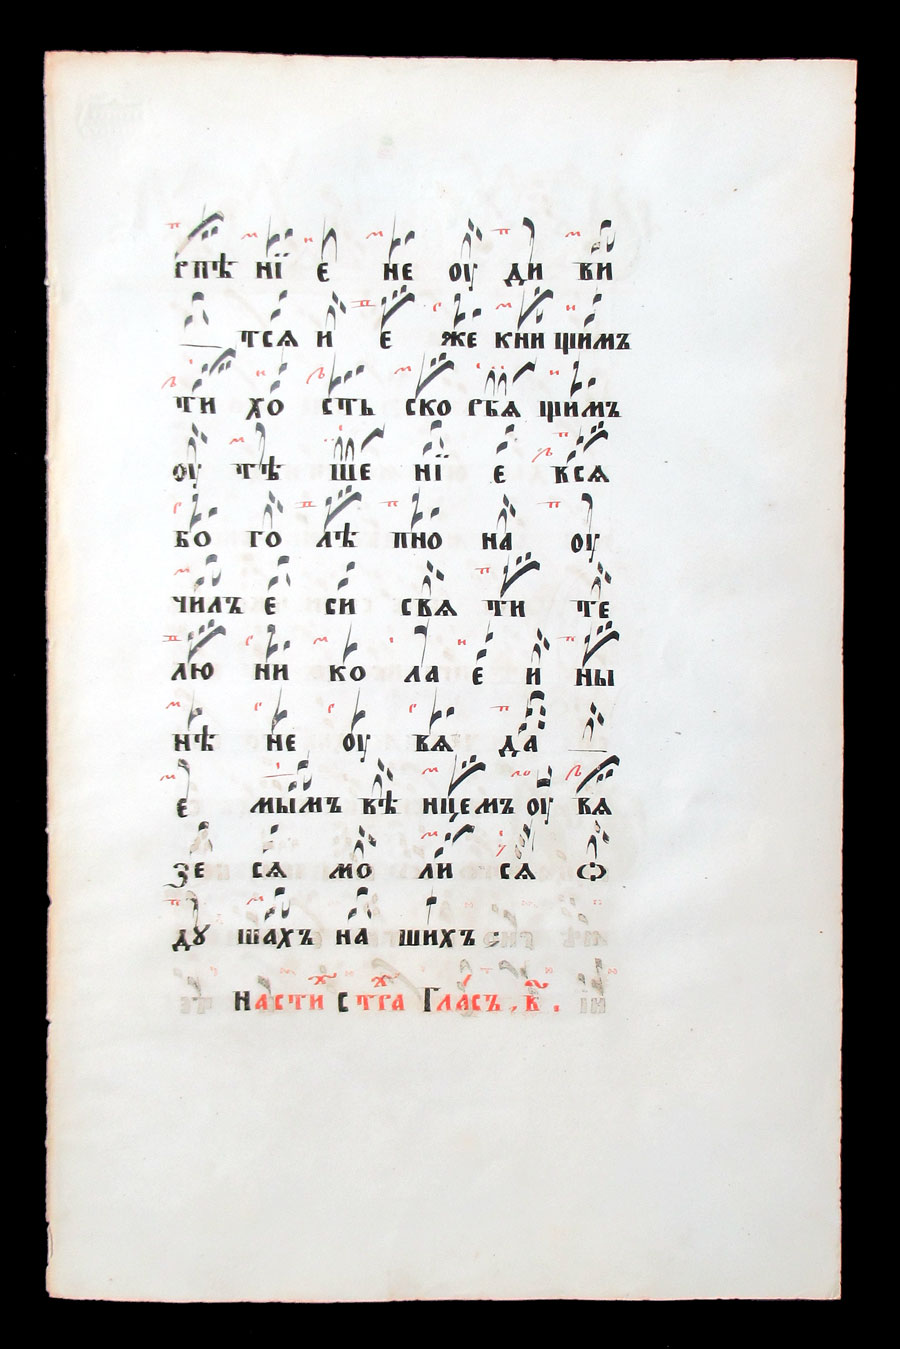 рпѣ нї е не оу ди ви
тся и е же кни щимъ
ти хо сть ско рбя щимъ
оу тѣ ше нї е вся
бо го лѣ пно на оу
чилъ е си свя ти те
лю ни ко ла е и ны
нѣ не оу вя да
е мымъ вѣ нцемъ оу вя
зе ся мо ли ся ѡ
ду шахъ на шихъ :
Насти стра Гласъ, в҃ .